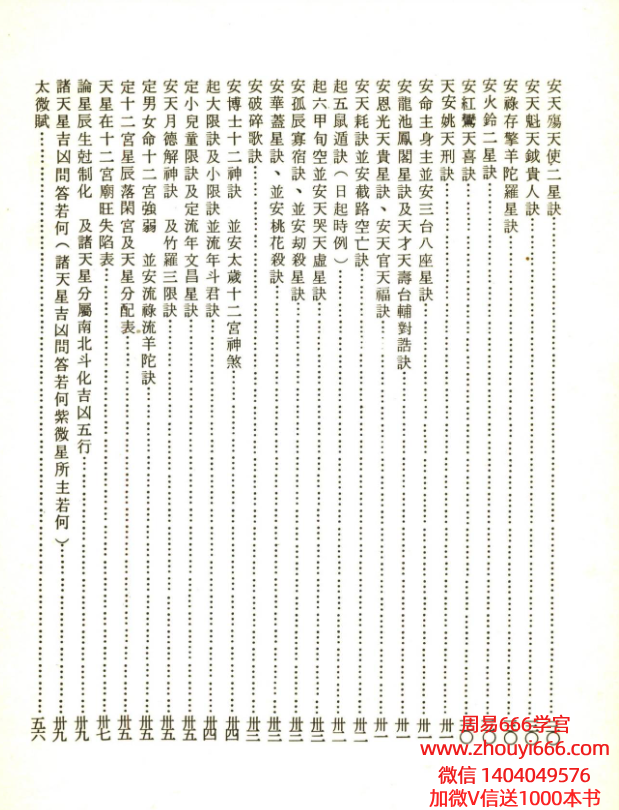 安天殤天使二星訣
安天魁天鉞貴人訣
安祿存擎羊陀羅星訣
安火鈴二星訣
安紅鸞天喜訣
天安姚天刑訣……卅一
安命主身主並安三台八座星訣……卅一
安龍池鳳閣星訣及天才天壽台輔對誥訣……卅一
安恩光天貴星訣、安天官天福訣……卅一
安天耗訣並安截路空亡訣……卅二
起五鼠遁訣（日起時例）……卅二
起六甲旬空並安天哭天虛星訣……卅三
安孤辰寡宿訣、並安刧殺星訣……卅三
安華蓋星訣、並安桃花殺訣……卅三
安破碎歌訣……卅三
安博士十二神訣　並安太歲十二宮神煞……卅四
起大限訣及小限訣並流年斗君訣……卅四
定小兒童限訣及定流年文昌星訣……卅五
安天月德解神訣　及竹羅三限訣……卅五
定男女命十二宮強弱　並安流祿流羊陀訣……卅五
定十二宮星辰落閑宮及天星分配表……卅五
天星在十二宮廟旺失陷表……卅七
論星辰生尅制化　及諸天星分屬南北斗化吉凶五行……卅九
諸天星吉凶問答若何（諸天星吉凶問答若何紫微星所主若何）……卅九
太微賦……五六
周易666学官
www.zhouyi666.com
微信 1404049576
加微V信送1000本书